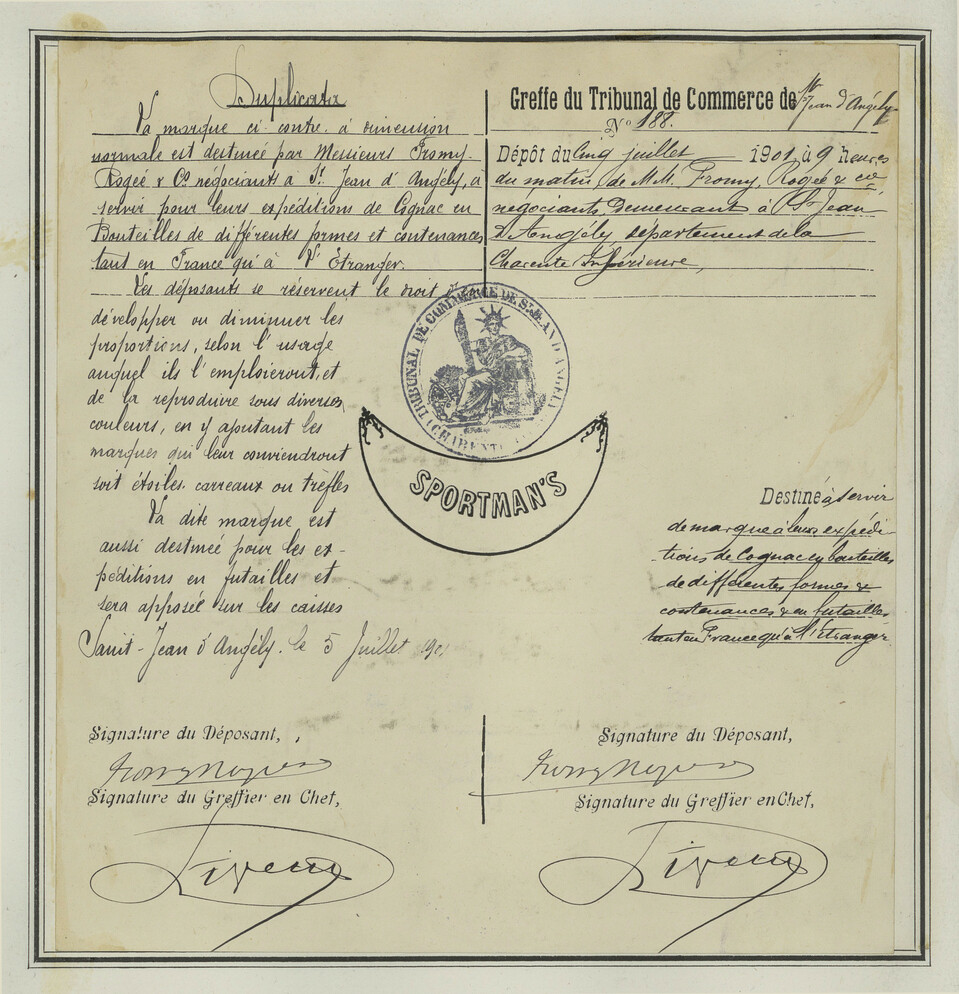 Duplicata
La marque ci contre à dimension
normale est destinée par Messieurs Fromy.
Rogée & Cº négociants à St. Jean d'Angély, à
servir pour leurs expéditions de Cognac en
Bouteilles de différentes formes et contenances
tant en France qu'à l'Etranger.
Les déposants se réservent le droit de
développer ou diminuer les
proportions, selon l'usage
auquel ils l'emploieront, et
de la reproduire sous diverses
couleurs, en y ajoutant les
marques qui leur conviendront
soit étoiles, carreaux ou trèfles
La dite marque est
aussi destinée pour les ex-
péditions en futailles et
sera apposée sur les caisses
Saint-Jean d'Angély. le 5 Juillet 1901
Signature du Déposant,
Fromy Rogée
Signature du Greffier en Chef,
Greffe du Tribunal de Commerce de St Jean d'Angély
Nº 188.
Dépôt du Cinq juillet 1901 à 9 heures
du matin de M.M. Fromy, Rogée & cie
négociants, Demeurant à St Jean
D'Angély département de la
Charente Inférieure,
TRIBUNAL DE COMMERCE DE St JEAN D'ANGÉLY
(CHARENTE
SPORTMAN'S
Destiné à servir
de marque à leurs expédi-
tions de Cognac en bouteilles
de différentes formes &
contenances & en futailles
tant en France qu'à l'Étranger
Signature du Déposant,
Fromy Rogée
Signature du Greffier en Chef,